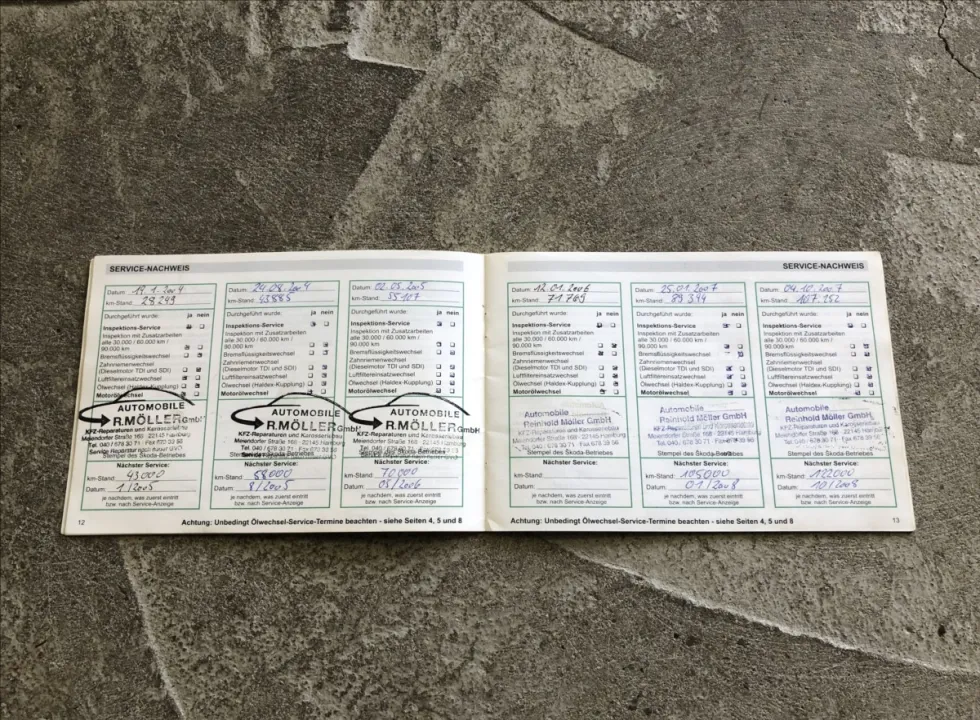 SERVICE-NACHWEIS
Datum: 19.1.2004
km-Stand: 28249
Durchgeführt wurde: ja nein
Inspektions-Service
Inspektion mit Zusatzarbeiten
alle 30.000 / 60.000 km /
90.000 km
Bremsflüssigkeitswechsel
Zahnriemenwechsel
(Dieselmotor TDI und SDI)
Luftfiltereinsatzwechsel
Ölwechsel (Haldex-Kupplung)
Motorölwechsel
AUTOMOBILE
R.MÖLLER GmbH
KFZ-Reparaturen und Karosseriebau
Meiendorfer Straße 168 · 22145 Hamburg
Tel. 040 / 678 30 71 · Fax 678 39 56
Stempel des Skoda-Betriebes
Nächster Service:
km-Stand: 43000
Datum: 1/2005
je nachdem, was zuerst eintritt
bzw. nach Service-Anzeige
Datum: 24.08.2004
km-Stand: 43885
Durchgeführt wurde: ja nein
Inspektions-Service
Inspektion mit Zusatzarbeiten
alle 30.000 / 60.000 km /
90.000 km
Bremsflüssigkeitswechsel
Zahnriemenwechsel
(Dieselmotor TDI und SDI)
Luftfiltereinsatzwechsel
Ölwechsel (Haldex-Kupplung)
Motorölwechsel
AUTOMOBILE
R.MÖLLER GmbH
KFZ-Reparaturen und Karosseriebau
Meiendorfer Straße 168 · 22145 Hamburg
Tel. 040 / 678 30 71 · Fax 678 39 56
Stempel des Skoda-Betriebes
Nächster Service:
km-Stand: 58000
Datum: 8/2005
je nachdem, was zuerst eintritt
bzw. nach Service-Anzeige
Datum: 02.05.2005
km-Stand: 55107
Durchgeführt wurde: ja nein
Inspektions-Service
Inspektion mit Zusatzarbeiten
alle 30.000 / 60.000 km /
90.000 km
Bremsflüssigkeitswechsel
Zahnriemenwechsel
(Dieselmotor TDI und SDI)
Luftfiltereinsatzwechsel
Ölwechsel (Haldex-Kupplung)
Motorölwechsel
AUTOMOBILE
R.MÖLLER GmbH
KFZ-Reparaturen und Karosseriebau
Meiendorfer Straße 168 · 22145 Hamburg
Tel. 040 / 678 30 71 · Fax 678 39 56
Stempel des Skoda-Betriebes
Nächster Service:
km-Stand: 70000
Datum: 05/2006
je nachdem, was zuerst eintritt
bzw. nach Service-Anzeige
12 Achtung: Unbedingt Ölwechsel-Service-Termine beachten - siehe Seiten 4, 5 und 8
SERVICE-NACHWEIS
Datum: 12.01.2006
km-Stand: 71765
Durchgeführt wurde: ja nein
Inspektions-Service
Inspektion mit Zusatzarbeiten
alle 30.000 / 60.000 km /
90.000 km
Bremsflüssigkeitswechsel
Zahnriemenwechsel
(Dieselmotor TDI und SDI)
Luftfiltereinsatzwechsel
Ölwechsel (Haldex-Kupplung)
Motorölwechsel
Automobile
Reinhold Möller GmbH
KFZ-Reparaturen und Karosseriebau
Meiendorfer Straße 168 · 22145 Hamburg
Tel. 040 / 678 30 71 · Fax 678 39 56
Stempel des Skoda-Betriebes
Nächster Service:
km-Stand:
Datum:
je nachdem, was zuerst eintritt
bzw. nach Service-Anzeige
Datum: 25.01.2007
km-Stand: 89394
Durchgeführt wurde: ja nein
Inspektions-Service
Inspektion mit Zusatzarbeiten
alle 30.000 / 60.000 km /
90.000 km
Bremsflüssigkeitswechsel
Zahnriemenwechsel
(Dieselmotor TDI und SDI)
Luftfiltereinsatzwechsel
Ölwechsel (Haldex-Kupplung)
Motorölwechsel
Automobile
Reinhold Möller GmbH
KFZ-Reparaturen und Karosseriebau
Meiendorfer Straße 168 · 22145 Hamburg
Tel. 040 / 678 30 71 · Fax 678 39 56
Stempel des Skoda-Betriebes
Nächster Service:
km-Stand: 105000
Datum: 01/2008
je nachdem, was zuerst eintritt
bzw. nach Service-Anzeige
Datum: 04.10.2007
km-Stand: 107.252
Durchgeführt wurde: ja nein
Inspektions-Service
Inspektion mit Zusatzarbeiten
alle 30.000 / 60.000 km /
90.000 km
Bremsflüssigkeitswechsel
Zahnriemenwechsel
(Dieselmotor TDI und SDI)
Luftfiltereinsatzwechsel
Ölwechsel (Haldex-Kupplung)
Motorölwechsel
Automobile
Reinhold Möller GmbH
KFZ-Reparaturen und Karosseriebau
Meiendorfer Straße 168 · 22145 Hamburg
Tel. 040 / 678 30 71 · Fax 678 39 56
Stempel des Skoda-Betriebes
Nächster Service:
km-Stand: 122000
Datum: 10/2008
je nachdem, was zuerst eintritt
bzw. nach Service-Anzeige
Achtung: Unbedingt Ölwechsel-Service-Termine beachten - siehe Seiten 4, 5 und 8 13